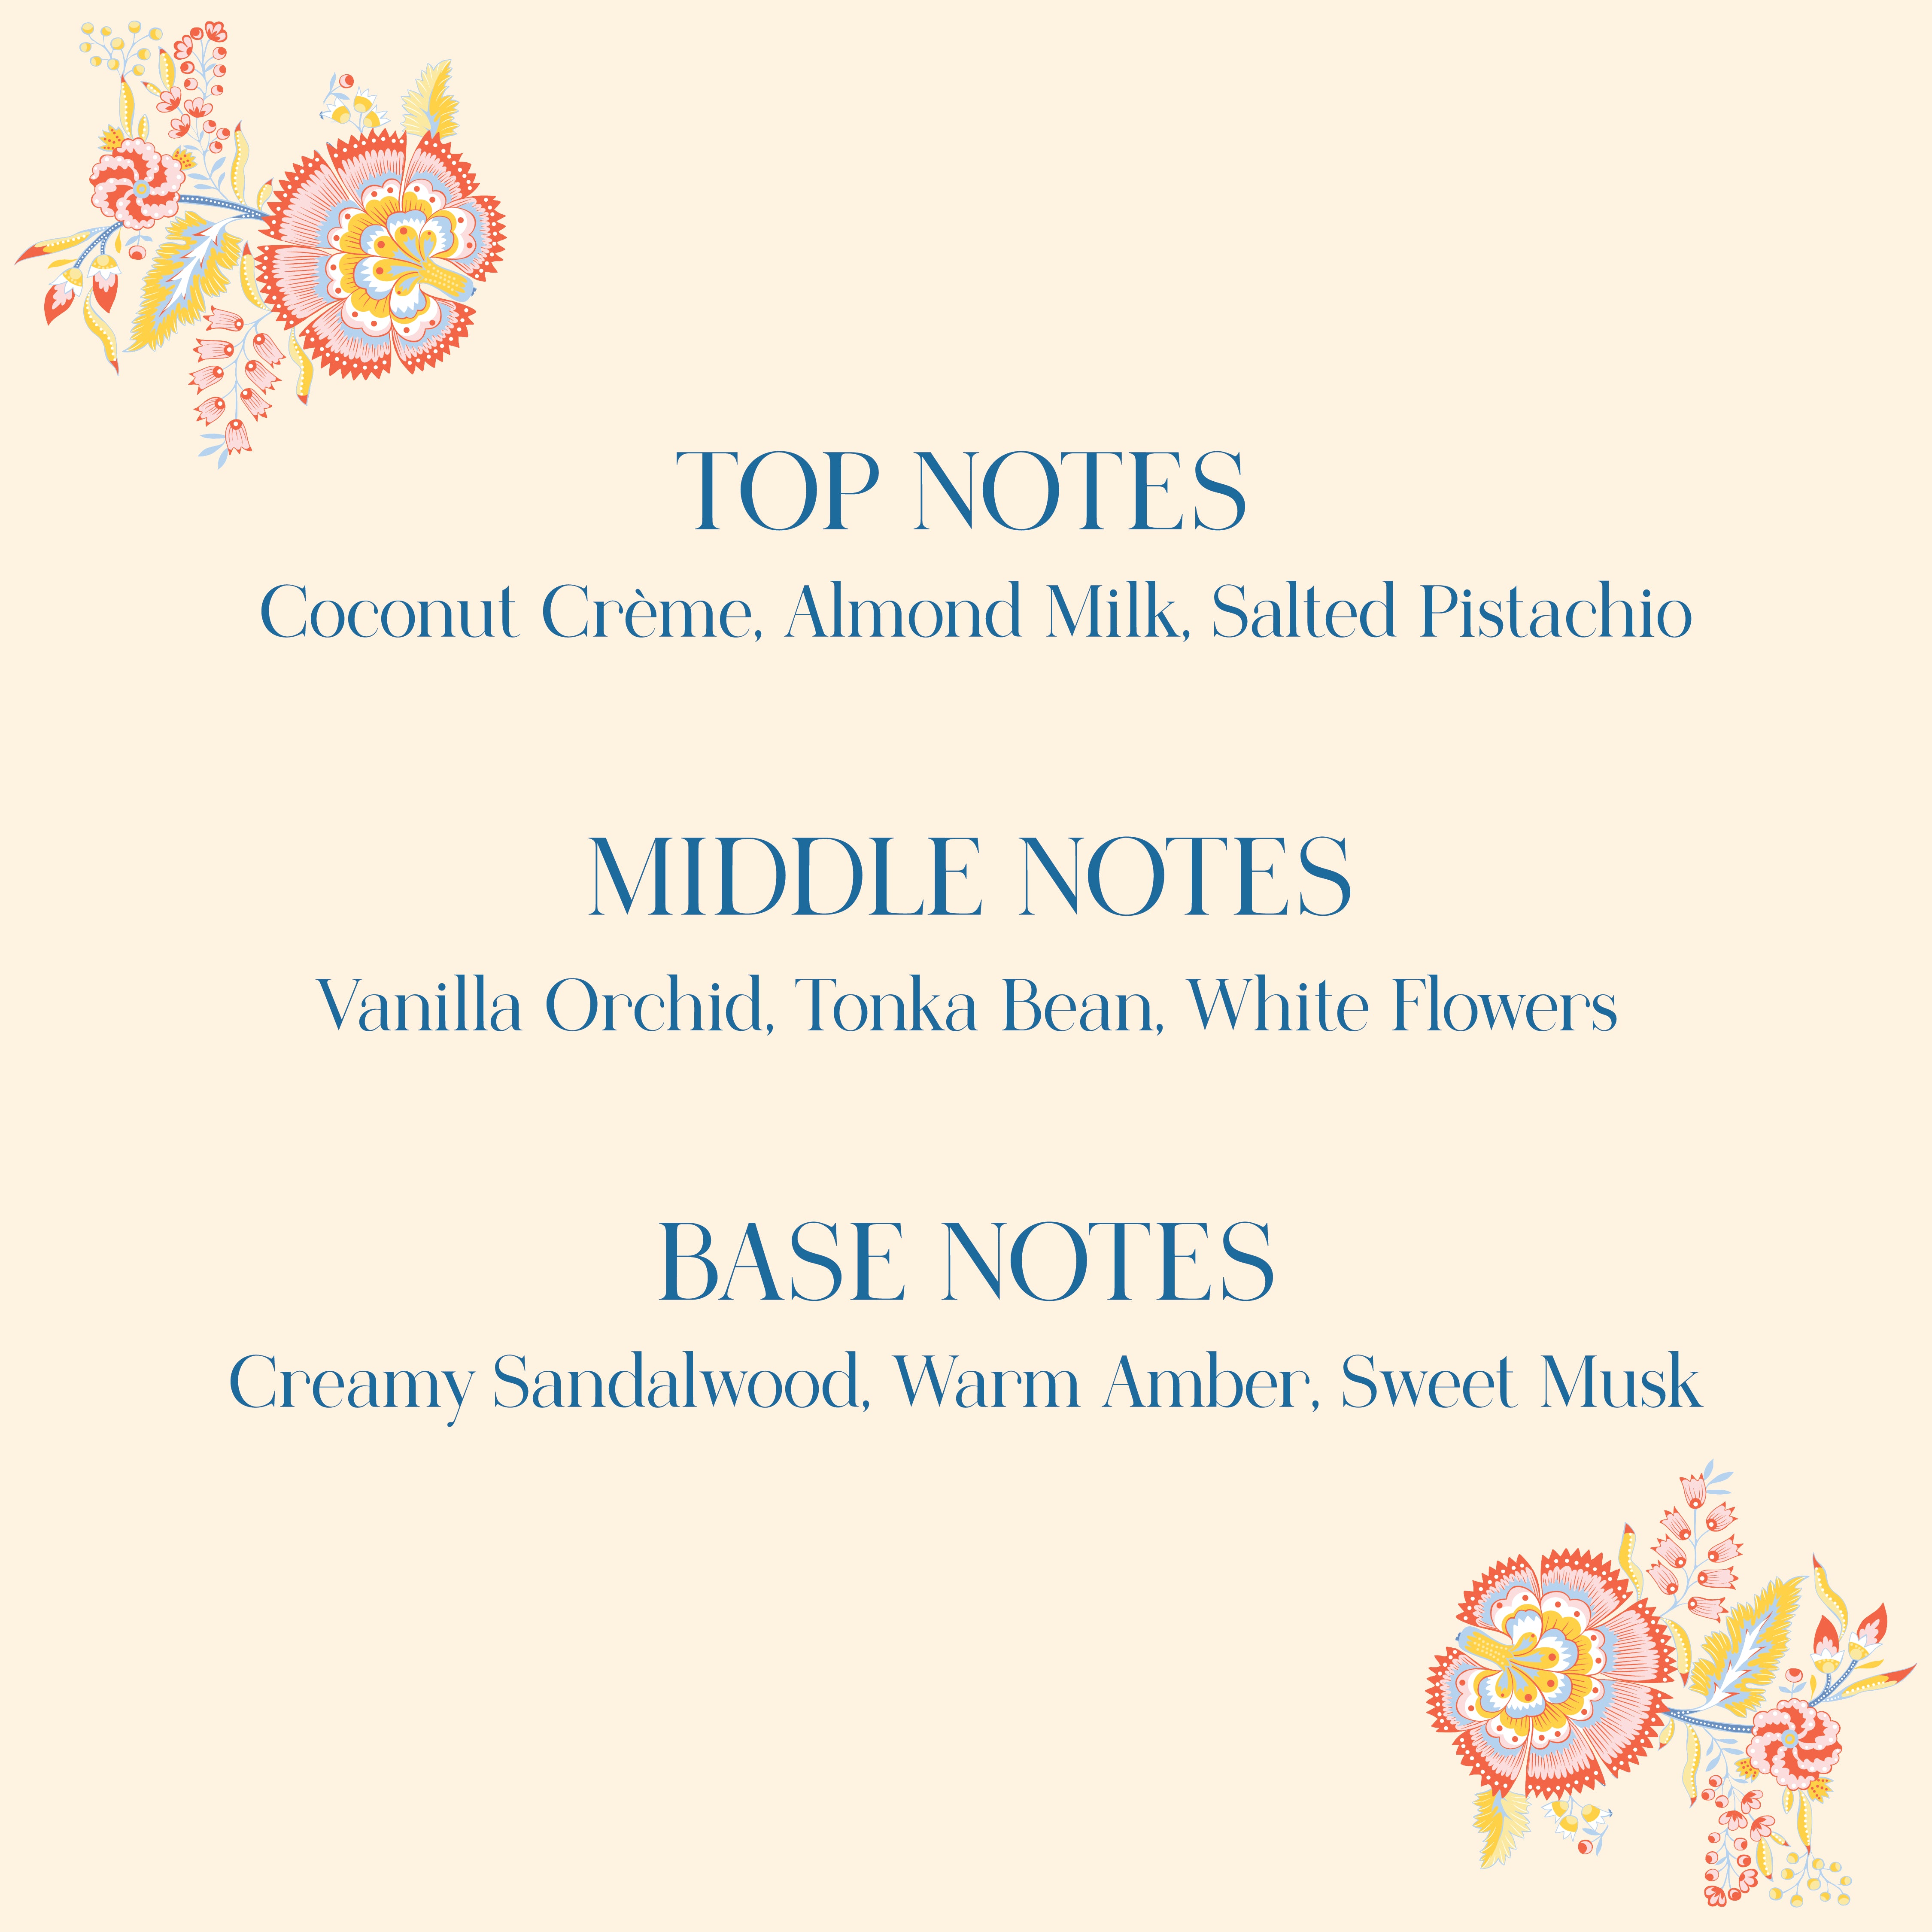 TOP NOTES
Coconut Crème, Almond Milk, Salted Pistachio
MIDDLE NOTES
Vanilla Orchid, Tonka Bean, White Flowers
BASE NOTES
Creamy Sandalwood, Warm Amber, Sweet Musk